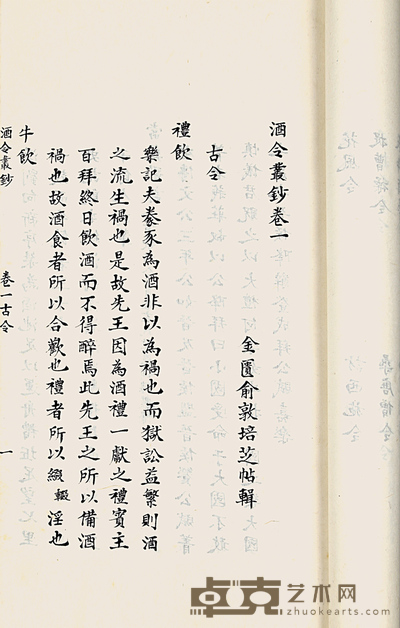 酒令叢鈔卷一
金匱俞敦培芝帖輯
古令
禮飲
樂記夫豢豕為酒非以為禍也而獄訟益繁則酒
之流生禍也是故先王因為酒禮一獻之禮賓主
百拜終日飲酒而不得醉焉此先王之所以備酒
禍也故酒食者所以合歡也禮者所以綴輟淫也
牛飲
酒令叢鈔 卷一古令 一
卓克艺术网
zhuokearts.com